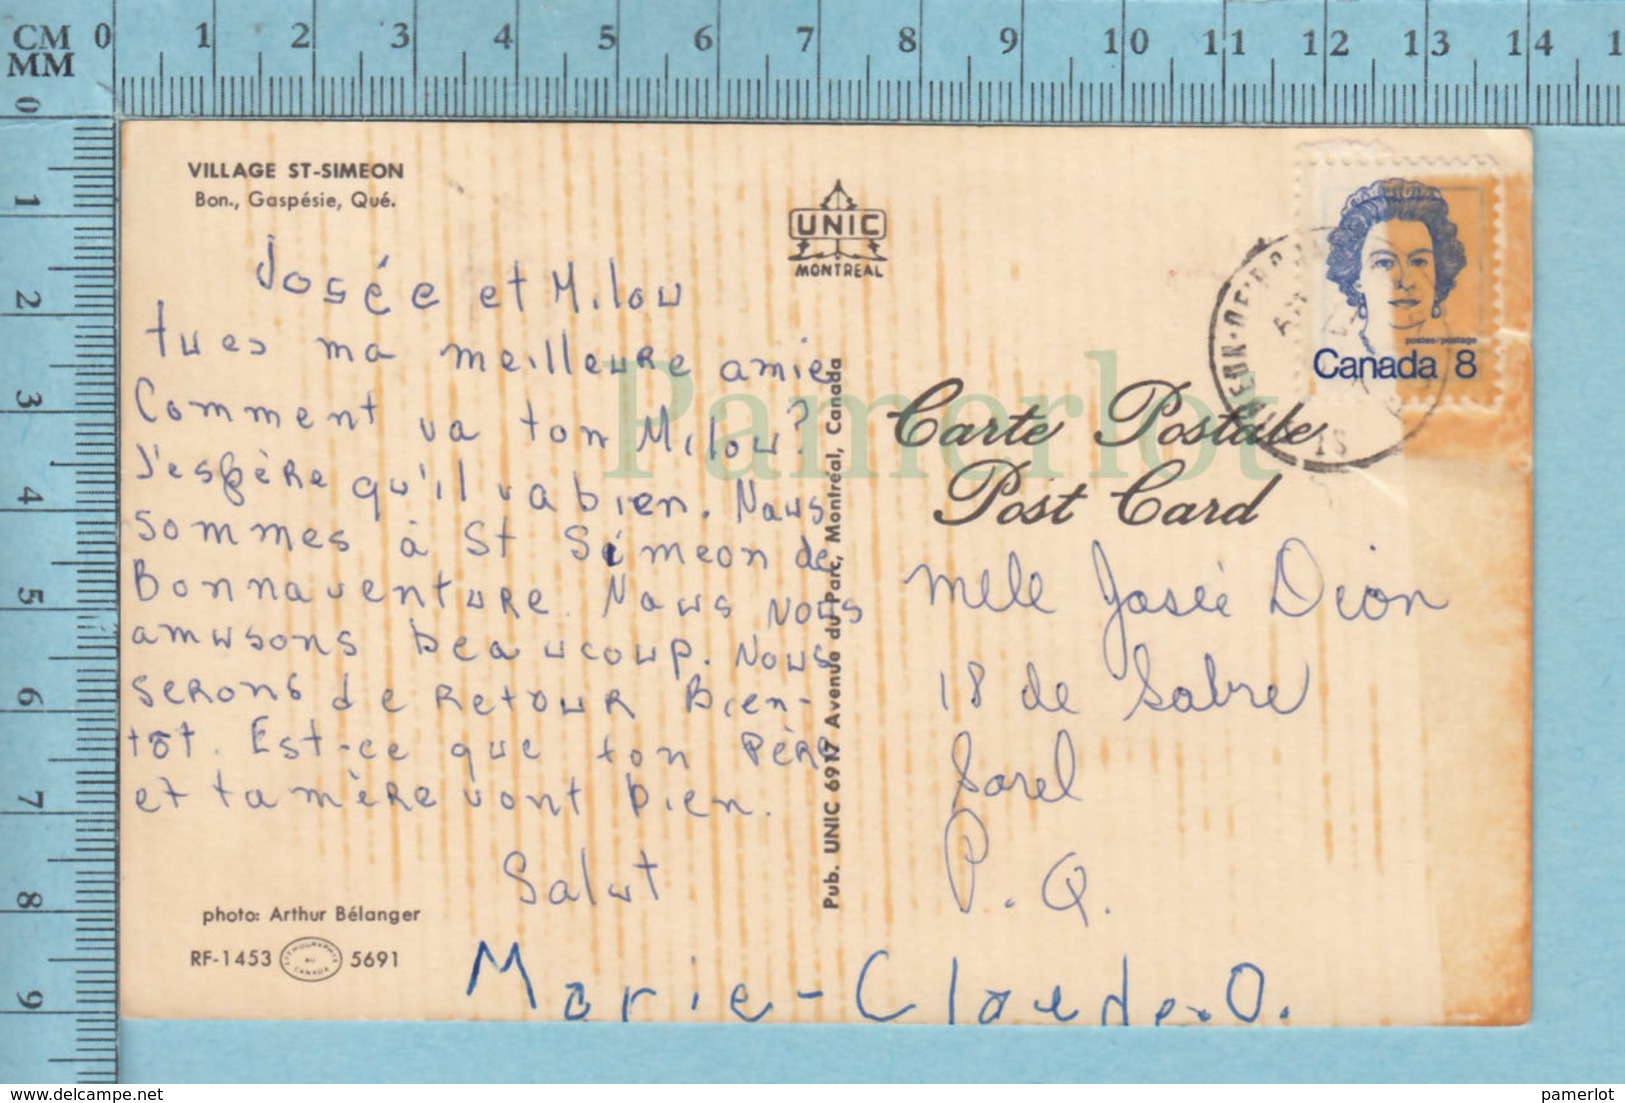 CM 0 1 2 3 4 5 6 7 8 9 10 11 12 13 14 1
MM
0 1 2 3 4 5 6 7 8 9
VILLAGE ST-SIMEON
Bon., Gaspésie, Qué.
UNIC
MONTREAL
postes/postage
Canada 8
Josée et Milou
tues ma meilleure amie
Comment va ton Milou?
J'espère qu'il va bien. Nous
sommes à St Siméon de
Bonnaventure. Nous nous
amusons beaucoup. Nous
serons de retour bien-
tôt. Est-ce que ton père
et ta mère vont bien.
Salut
Marie-Claude.O.
Pub. UNIC 6917 Avenue du Parc, Montréal, Canada
Carte Postale
Post Card
Melle Josée Dion
18 de Sabre
Sorel
P.Q.
photo: Arthur Bélanger
RF-1453 LITHOGRAPHIE AU CANADA 5691
Pamerlot
https://www.delcampe.net
pamerlot